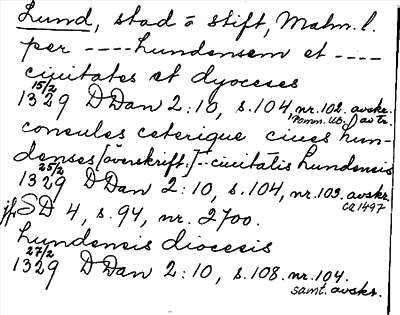 Lund, stad o stift, Malm. l.
per ---- lundensem et ----
ciuitates et dyoceses
15/2
1329 DDan 2:10, s. 104 nr. 102. avskr.
Pomm. UB. av tr.
consules ceterique ciues lun-
denses [överskrift:] -- ciuitatis lundensis
25/2
1329 DDan 2:10, s. 104, nr. 103. avskr.
ca 1497
jfr SD 4, s. 94, nr. 2700.
lundensis diocesis
27/2
1329 DDan 2:10, s. 108. nr. 104.
samt. avskr.